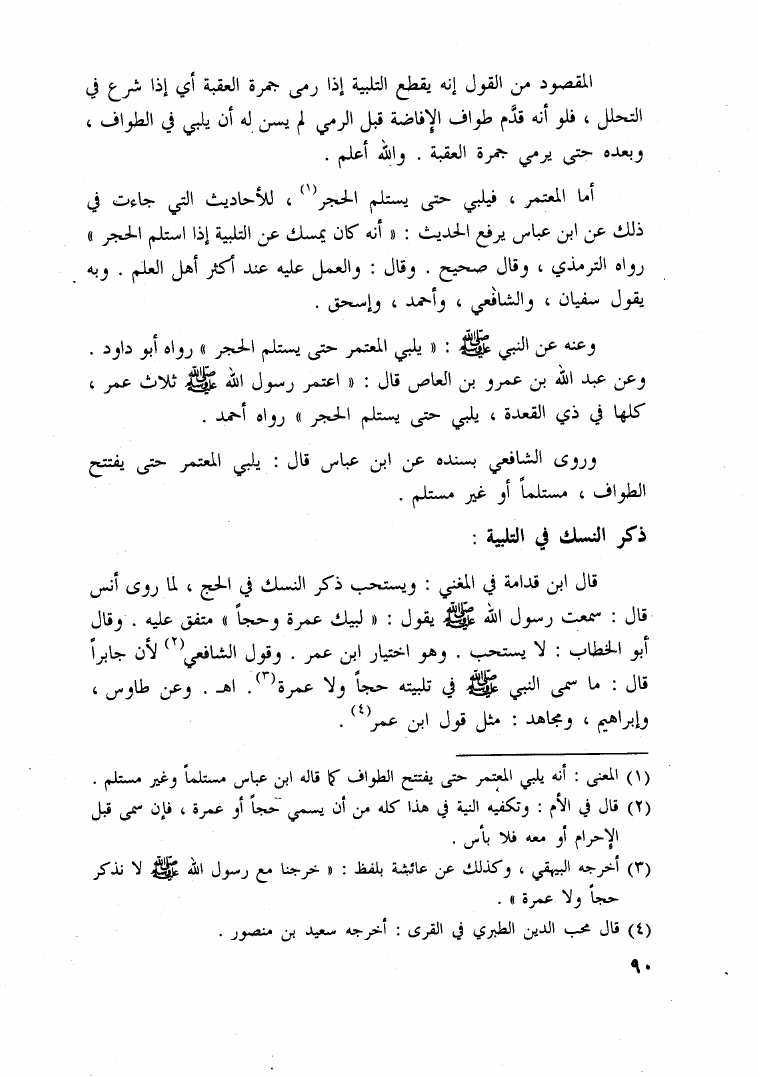 المقصود من القول إنه يقطع التلبية إذا رمى جمرة العقبة أي إذا شرع في
التحلل ، فلو أنه قدَّم طواف الإفاضة قبل الرمي لم يسن له أن يلبي في الطواف ،
وبعده حتى يرمي جمرة العقبة . والله أعلم .
أما المعتمر ، فيلبي حتى يستلم الحجر(١) ، للأحاديث التي جاءت في
ذلك عن ابن عباس يرفع الحديث : « أنه كان يمسك عن التلبية إذا استلم الحجر »
رواه الترمذي ، وقال صحيح . وقال : والعمل عليه عند أكثر أهل العلم . وبه
يقول سفيان ، والشافعي ، وأحمد ، وإسحق .
وعنه عن النبي ﷺ : « يلبي المعتمر حتى يستلم الحجر » رواه أبو داود .
وعن عبد الله بن عمرو بن العاص قال : « اعتمر رسول الله ﷺ ثلاث عمر ،
كلها في ذي القعدة ، يلبي حتى يستلم الحجر » رواه أحمد .
وروى الشافعي بسنده عن ابن عباس قال : يلبي المعتمر حتى يفتتح
الطواف ، مستلماً أو غير مستلم .
ذكر النسك في التلبية :
قال ابن قدامة في المغني : ويستحب ذكر النسك في الحج ، لما روى أنس
قال : سمعت رسول الله ﷺ يقول : « لبيك عمرة وحجاً » متفق عليه . وقال
أبو الخطاب : لا يستحب . وهو اختيار ابن عمر . وقول الشافعي(٢) لأن جابراً
قال : ما سمى النبي ﷺ في تلبيته حجاً ولا عمرة(٣). اهـ . وعن طاوس ،
وإبراهيم ، ومجاهد : مثل قول ابن عمر(٤) .
(١) المعنى : أنه يلبي المعتمر حتى يفتتح الطواف كما قاله ابن عباس مستلماً وغير مستلم .
(٢) قال في الأم : وتكفيه النية في هذا كله من أن يسمي حجاً أو عمرة ، فإن سمى قبل
الإحرام أو معه فلا بأس .
(٣) أخرجه البيهقي ، وكذلك عن عائشة بلفظ : « خرجنا مع رسول الله ﷺ لا نذكر
حجاً ولا عمرة » .
(٤) قال محب الدين الطبري في القرى : أخرجه سعيد بن منصور .
٩٠